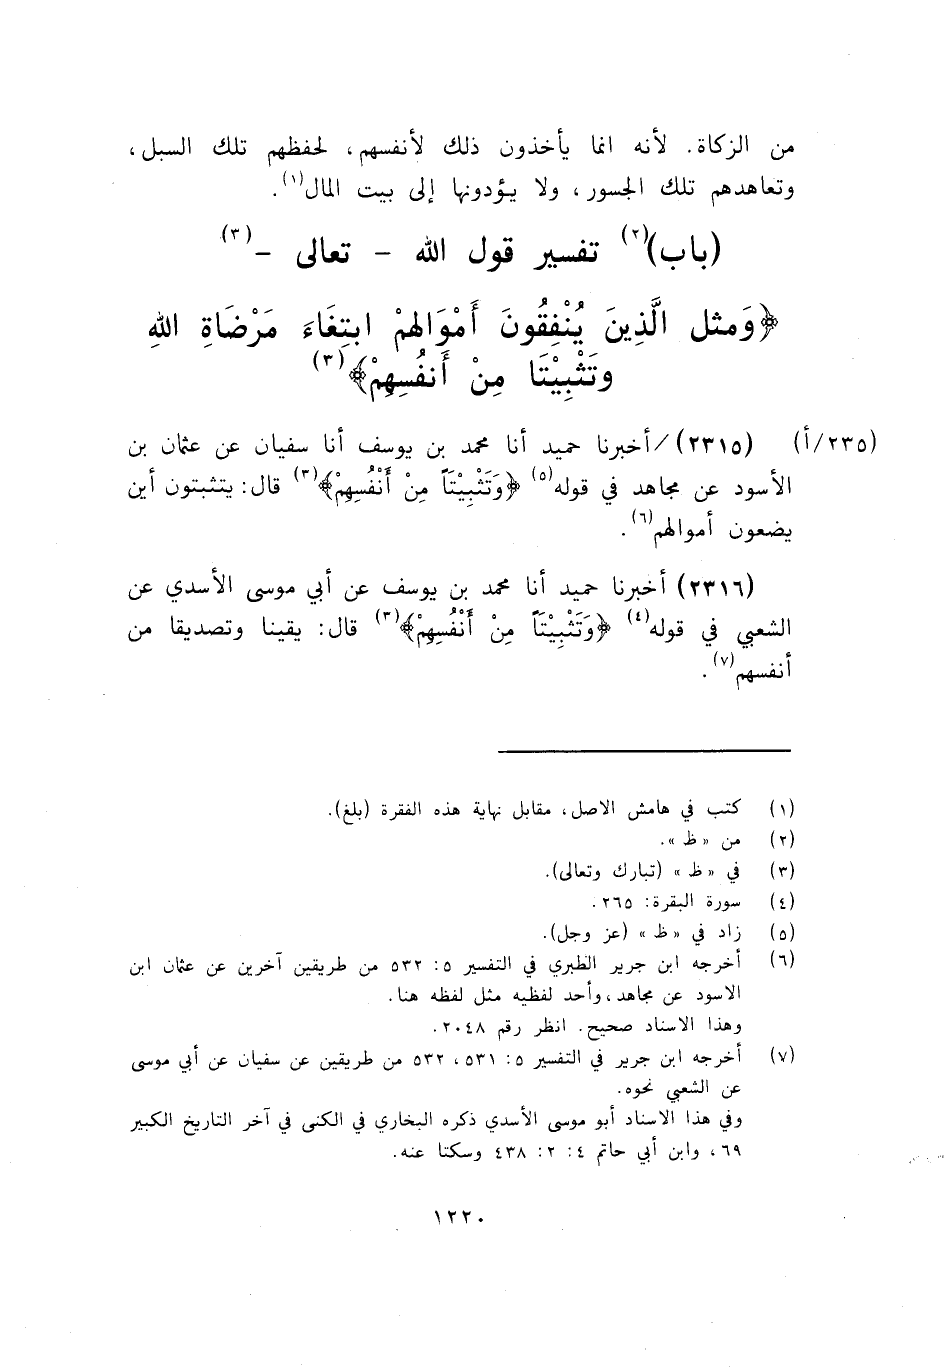 من الزكاة. لأنه انما يأخذون ذلك لأنفسهم، لحفظهم تلك السبل،
وتعاهدهم تلك الجسور، ولا يؤدونها إلى بيت المال(١).
(باب)(٢) تفسير قول الله - تعالى -(٣)
﴿وَمثل الَّذِينَ يُنْفِقُونَ أَمْوَالهمْ ابتِغَاءَ مَرْضَاةِ اللهِ
وتَثْبِيْتَا مِنْ أَنفُسِهِمْ﴾(٣)
(٢٣٥/أ) (٢٣١٥)/أخبرنا حميد أنا محمد بن يوسف أنا سفيان عن عثمان بن
الأسود عن مجاهد في قوله(٥) ﴿وَتَثْبِيْتَاً مِنْ أَنْفُسِهِمْ﴾(٣) قال: يتثبتون أين
يضعون أموالهم(٦).
(٢٣١٦) أخبرنا حميد أنا محمد بن يوسف عن أبي موسى الأسدي عن
الشعبي في قوله(٤) ﴿وَتَثْبِيْتَاً مِنْ أَنْفُسِهِمْ﴾(٣) قال: يقينا وتصديقا من
أنفسهم(٧).
(١) كتب في هامش الاصل، مقابل نهاية هذه الفقرة (بلغ).
(٢) من « ظ ».
(٣) في « ظ » (تبارك وتعالى).
(٤) سورة البقرة: ٢٦٥.
(٥) زاد في « ظ » (عز وجل).
(٦) أخرجه ابن جرير الطبري في التفسير ٥: ٥٣٢ من طريقين آخرين عن عثمان ابن
الاسود عن مجاهد، وأحد لفظيه مثل لفظه هنا.
وهذا الاسناد صحيح. انظر رقم ٢٠٤٨.
(٧) أخرجه ابن جرير في التفسير ٥: ٥٣١، ٥٣٢ من طريقين عن سفيان عن أبي موسى
عن الشعبي نحوه.
وفي هذا الاسناد أبو موسى الأسدي ذكره البخاري في الكنى في آخر التاريخ الكبير
٦٩، وابن أبي حاتم ٤: ٢: ٤٣٨ وسكتا عنه.
١٢٢٠